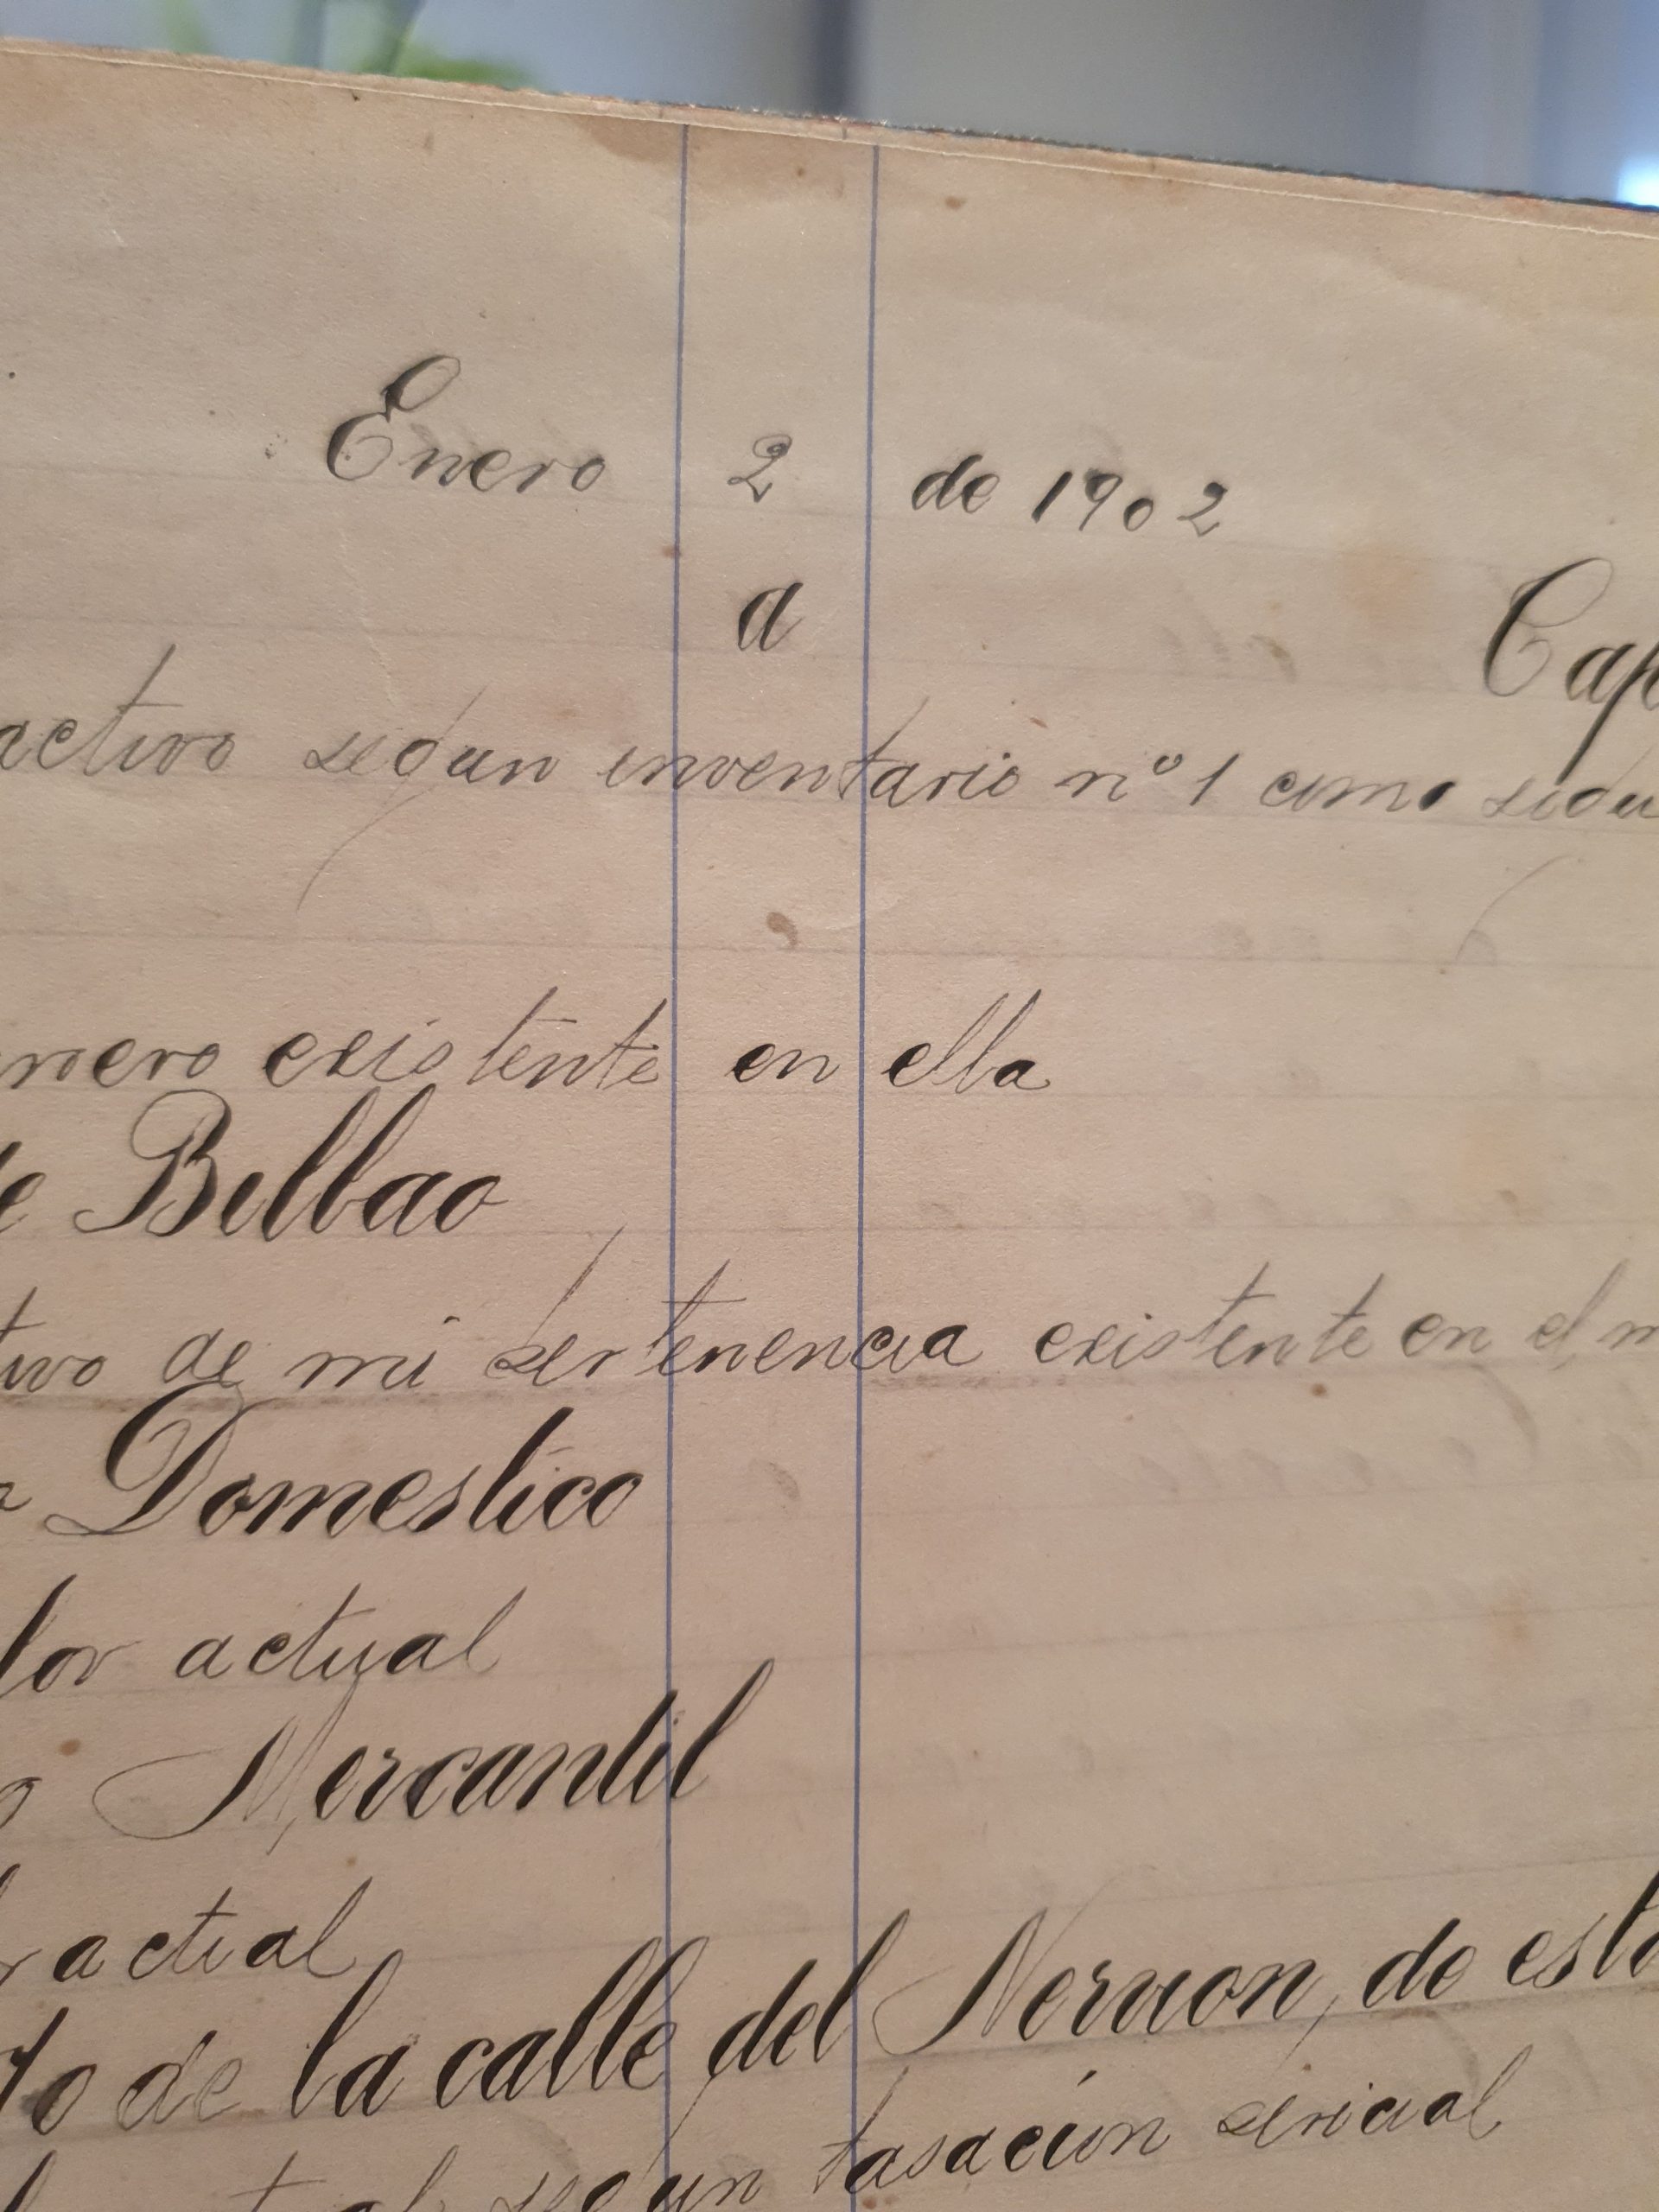 Enero 2 de 1902
a Cap
activo segun inventario nº 1 como sigu
nero existente en ella
de Bilbao
tivo de mi pertenencia existente en el m
a Domestico
lor actual
o Mercantil
r actual
de la calle del Nervion, de esta
segun tasación pericial